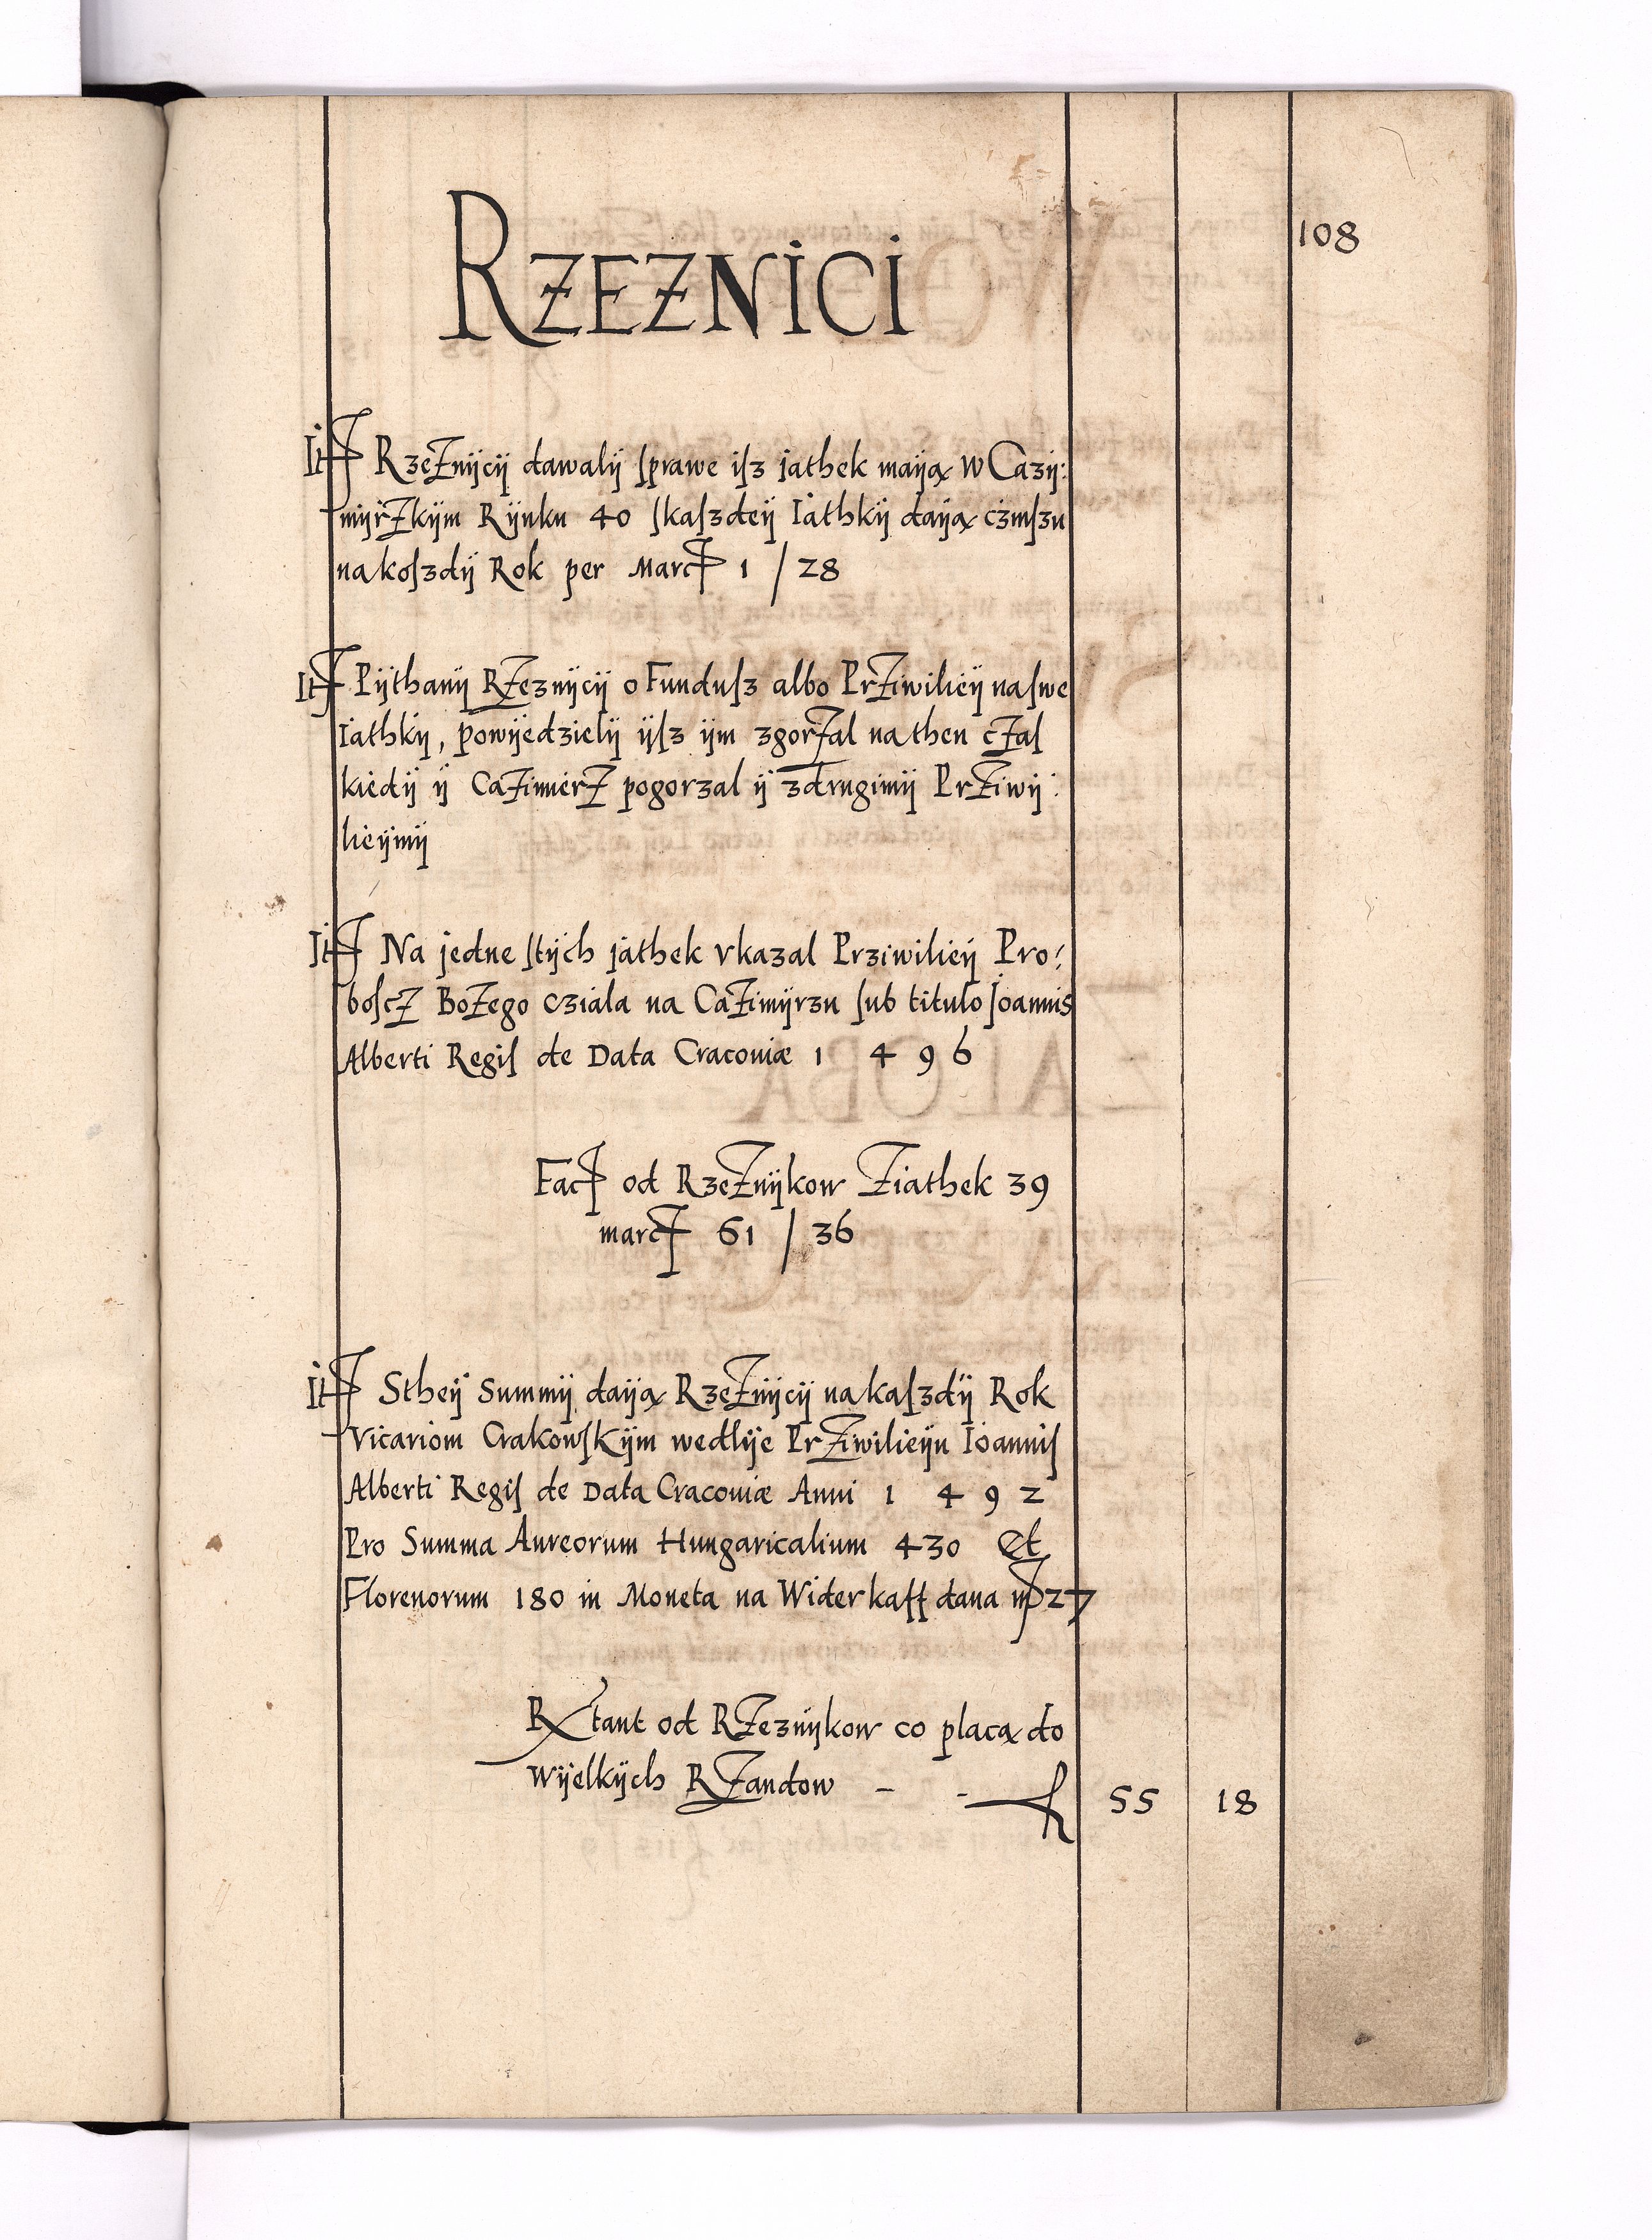 108
RZEZNICI
It Rzeżnÿcÿ dawalÿ sprawe isz jathek maÿą w Cazÿ:
mÿrżkÿm Rÿnku 40 skaszdeÿ Iathkÿ daÿą czinszu
na koszdÿ Rok per Marc 1 / 28
It Pÿthanÿ Rżeznÿcÿ o Fundusz albo Prżiwilieÿ na swe
Iathkÿ, powÿedzielÿ ÿsz ÿm zgorżal na then cżas
kiedÿ ÿ Cażimierż pogorzal ÿ z drugimÿ Prżiwÿ:
lieÿmÿ
It Na jedne stÿch jathek vkazal Prziwilieÿ Pro:
boscż Bożego cziala na Cażimÿrzu sub titulo Joannis
Alberti Regis de Data Cracouiæ 1 4 9 6
Fac od Rzeżnÿkow Ziathek 39
marc 61 / 36
It Stheÿ Summÿ daÿą Rzeżnÿcÿ na kaszdÿ Rok
Vicariom Crakowskÿm wedlÿe Prżiwilieÿu Ioannis
Alberti Regis de Data Cracouiæ Anni 1 4 9 2
Pro Summa Aureorum Hungaricalium 430 Et
Florenorum 180 in Moneta na Widerkaff dana m 27
Rxtant od Rżeznÿkow co placą do
Wÿelkÿch Rżandow - - f 55 18